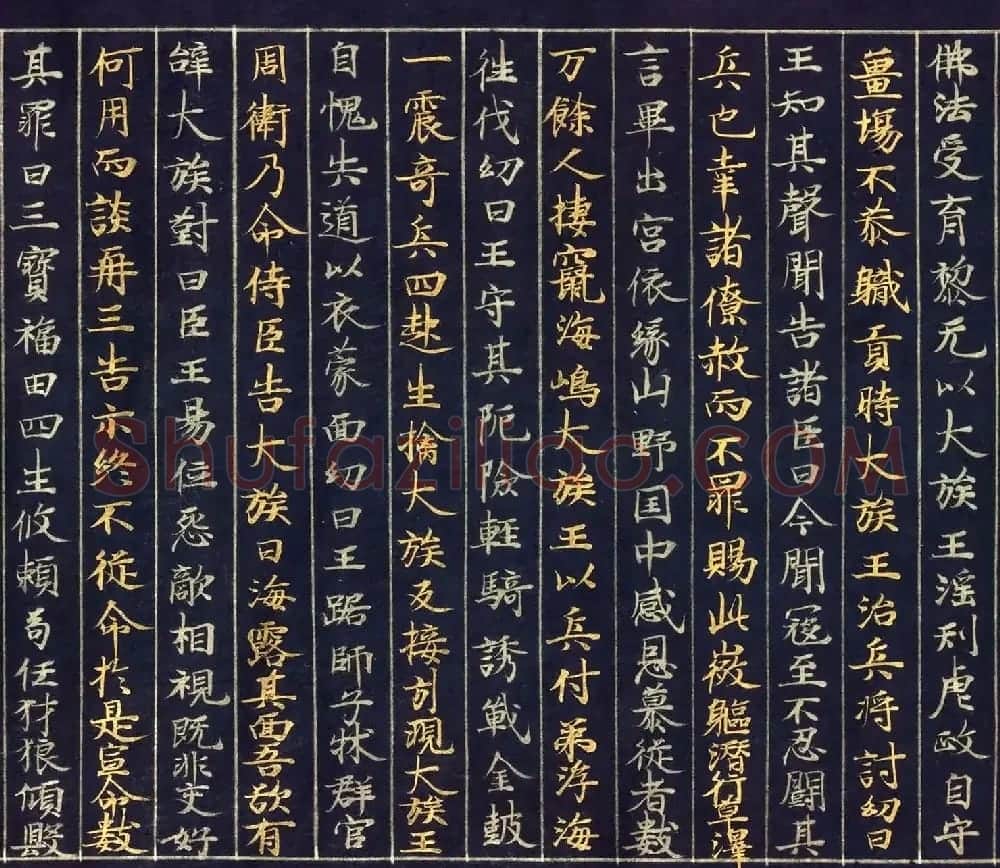 佛法受育黎元以大族王淫刑虐政自守
薑場不恭職貢時大族王治兵將討幼日
王知其聲聞告諸臣曰今聞寇至不忍鬪其
兵也幸諸僚赦而不罪賜此微軀潛行草澤
言畢出宮依緣山野国中感恩慕從者數
万餘人棲竄海嶋大族王以兵付弟浮海
往伐幼日王守其阨險輕騎誘戰金鼓
一震奇兵四赴生擒大族反接引現大族王
自愧失道以衣蒙面幼日王踞師子牀群官
周衛乃命侍臣告大族曰海露其面吾欲有
辭大族對曰臣王易位惡敵相視既非交好
何用而談再三告示終不從命於是宣命數
其罪曰三寶福田四生攸賴苟任豺狼傾毀
Shufaziliao.COM